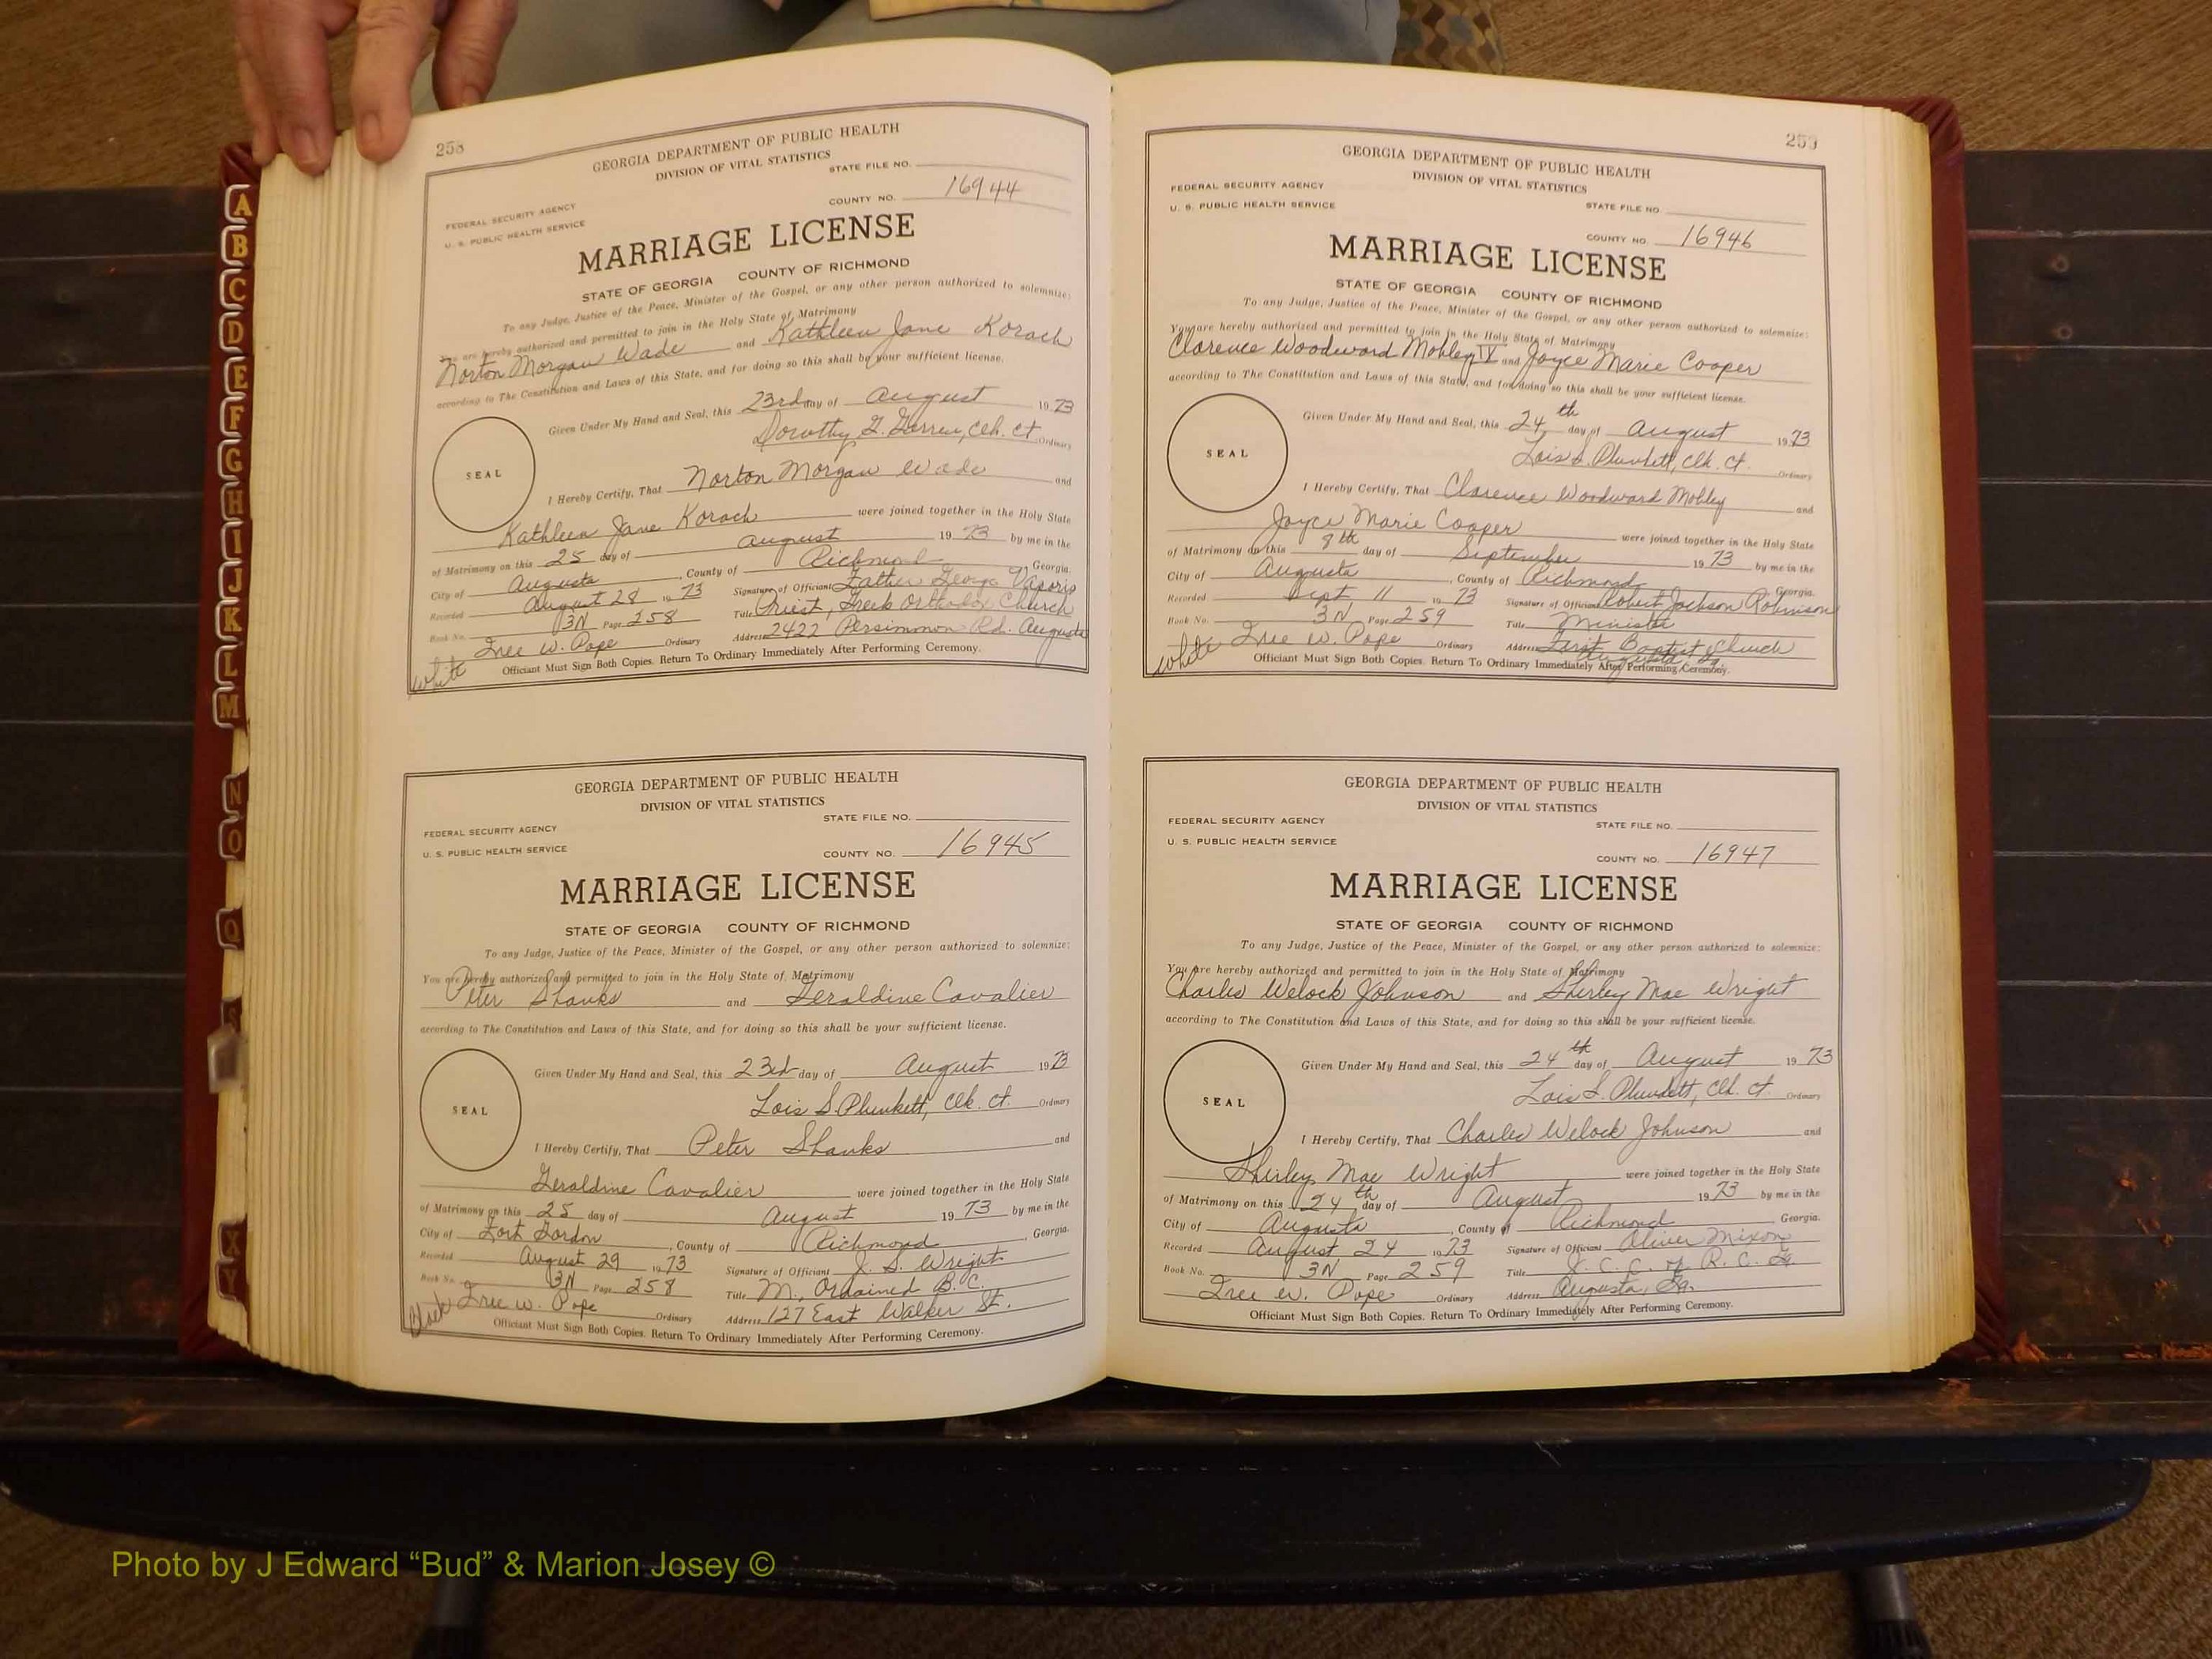 258
GEORGIA DEPARTMENT OF PUBLIC HEALTH
DIVISION OF VITAL STATISTICS
STATE FILE NO.
COUNTY NO. 16944
FEDERAL SECURITY AGENCY
U. S. PUBLIC HEALTH SERVICE
MARRIAGE LICENSE
STATE OF GEORGIA COUNTY OF RICHMOND
To any Judge, Justice of the Peace, Minister of the Gospel, or any other person authorized to solemnize:
You are hereby authorized and permitted to join in the Holy State of Matrimony
Norton Morgan Wade and Kathleen Jane Korach
according to The Constitution and Laws of this State, and for doing so this shall be your sufficient license.
Given Under My Hand and Seal, this 23rd day of August 1973
Dorothy Clk. Ct. Ordinary
SEAL
I Hereby Certify, That Norton Morgan Wade and
Kathleen Jane Korach were joined together in the Holy State
of Matrimony on this 25 day of August 1973 by me in the
City of Augusta, County of Richmond Georgia.
Recorded August 28 1973 Signature of Officiant Father George Vaporis
Book No. 3N Page 258 Title Priest, Greek Orthodox Church
Iree W. Pope Ordinary Address 2422 Persimmon Rd. Augusta
white Officiant Must Sign Both Copies. Return To Ordinary Immediately After Performing Ceremony.
GEORGIA DEPARTMENT OF PUBLIC HEALTH
DIVISION OF VITAL STATISTICS
STATE FILE NO.
FEDERAL SECURITY AGENCY
U. S. PUBLIC HEALTH SERVICE
COUNTY NO. 16945
MARRIAGE LICENSE
STATE OF GEORGIA COUNTY OF RICHMOND
To any Judge, Justice of the Peace, Minister of the Gospel, or any other person authorized to solemnize:
You are hereby authorized and permitted to join in the Holy State of Matrimony
Peter Shanks and Geraldine Cavalier
according to The Constitution and Laws of this State, and for doing so this shall be your sufficient license.
Given Under My Hand and Seal, this 23rd day of August 1973
Lois S. Plunkett, Clk. Ct. Ordinary
SEAL
I Hereby Certify, That Peter Shanks and
Geraldine Cavalier were joined together in the Holy State
of Matrimony on this 25 day of August 1973 by me in the
City of Fort Gordon, County of Richmond, Georgia.
Recorded August 29 1973 Signature of Officiant J. S. Wright
Book No. 3N Page 258 Title M., Ordained B.C.
Iree W. Pope Ordinary Address 127 East Walker St.
Black Officiant Must Sign Both Copies. Return To Ordinary Immediately After Performing Ceremony.
259
GEORGIA DEPARTMENT OF PUBLIC HEALTH
DIVISION OF VITAL STATISTICS
FEDERAL SECURITY AGENCY
U. S. PUBLIC HEALTH SERVICE
STATE FILE NO.
COUNTY NO. 16946
MARRIAGE LICENSE
STATE OF GEORGIA COUNTY OF RICHMOND
To any Judge, Justice of the Peace, Minister of the Gospel, or any other person authorized to solemnize:
You are hereby authorized and permitted to join in the Holy State of Matrimony
Clarence Woodward Mobley IV and Joyce Marie Cooper
according to The Constitution and Laws of this State, and for doing so this shall be your sufficient license.
Given Under My Hand and Seal, this 24th day of August 1973
Lois S. Plunkett, Clk. Ct. Ordinary
SEAL
I Hereby Certify, That Clarence Woodward Mobley and
Joyce Marie Cooper were joined together in the Holy State
of Matrimony on this 8th day of September 1973 by me in the
City of Augusta, County of Richmond, Georgia.
Recorded Sept 11 1973 Signature of Officiant Robert Jackson Robinson
Book No. 3N Page 259 Title Minister
Iree W. Pope Ordinary Address First Baptist Church
Augusta Ga.
white Officiant Must Sign Both Copies. Return To Ordinary Immediately After Performing Ceremony.
GEORGIA DEPARTMENT OF PUBLIC HEALTH
DIVISION OF VITAL STATISTICS
FEDERAL SECURITY AGENCY
STATE FILE NO.
U. S. PUBLIC HEALTH SERVICE
COUNTY NO. 16947
MARRIAGE LICENSE
STATE OF GEORGIA COUNTY OF RICHMOND
To any Judge, Justice of the Peace, Minister of the Gospel, or any other person authorized to solemnize:
You are hereby authorized and permitted to join in the Holy State of Matrimony
Charles Welock Johnson and Shirley Mae Wright
according to The Constitution and Laws of this State, and for doing so this shall be your sufficient license.
Given Under My Hand and Seal, this 24th day of August 1973
Lois S. Plunkett, Clk. Ct. Ordinary
SEAL
I Hereby Certify, That Charles Welock Johnson and
Shirley Mae Wright were joined together in the Holy State
of Matrimony on this 24th day of August 1973 by me in the
City of Augusta, County of Richmond, Georgia.
Recorded August 24 1973 Signature of Officiant Oliver Mixon
Book No. 3N Page 259 Title J. C. C. of R. C. Ga.
Iree W. Pope Ordinary Address Augusta, Ga.
Officiant Must Sign Both Copies. Return To Ordinary Immediately After Performing Ceremony.
A
B
C
D
E
F
G
H
I
J
K
L
M
N
O
Q
S
X
Y
Photo by J Edward “Bud” & Marion Josey ©